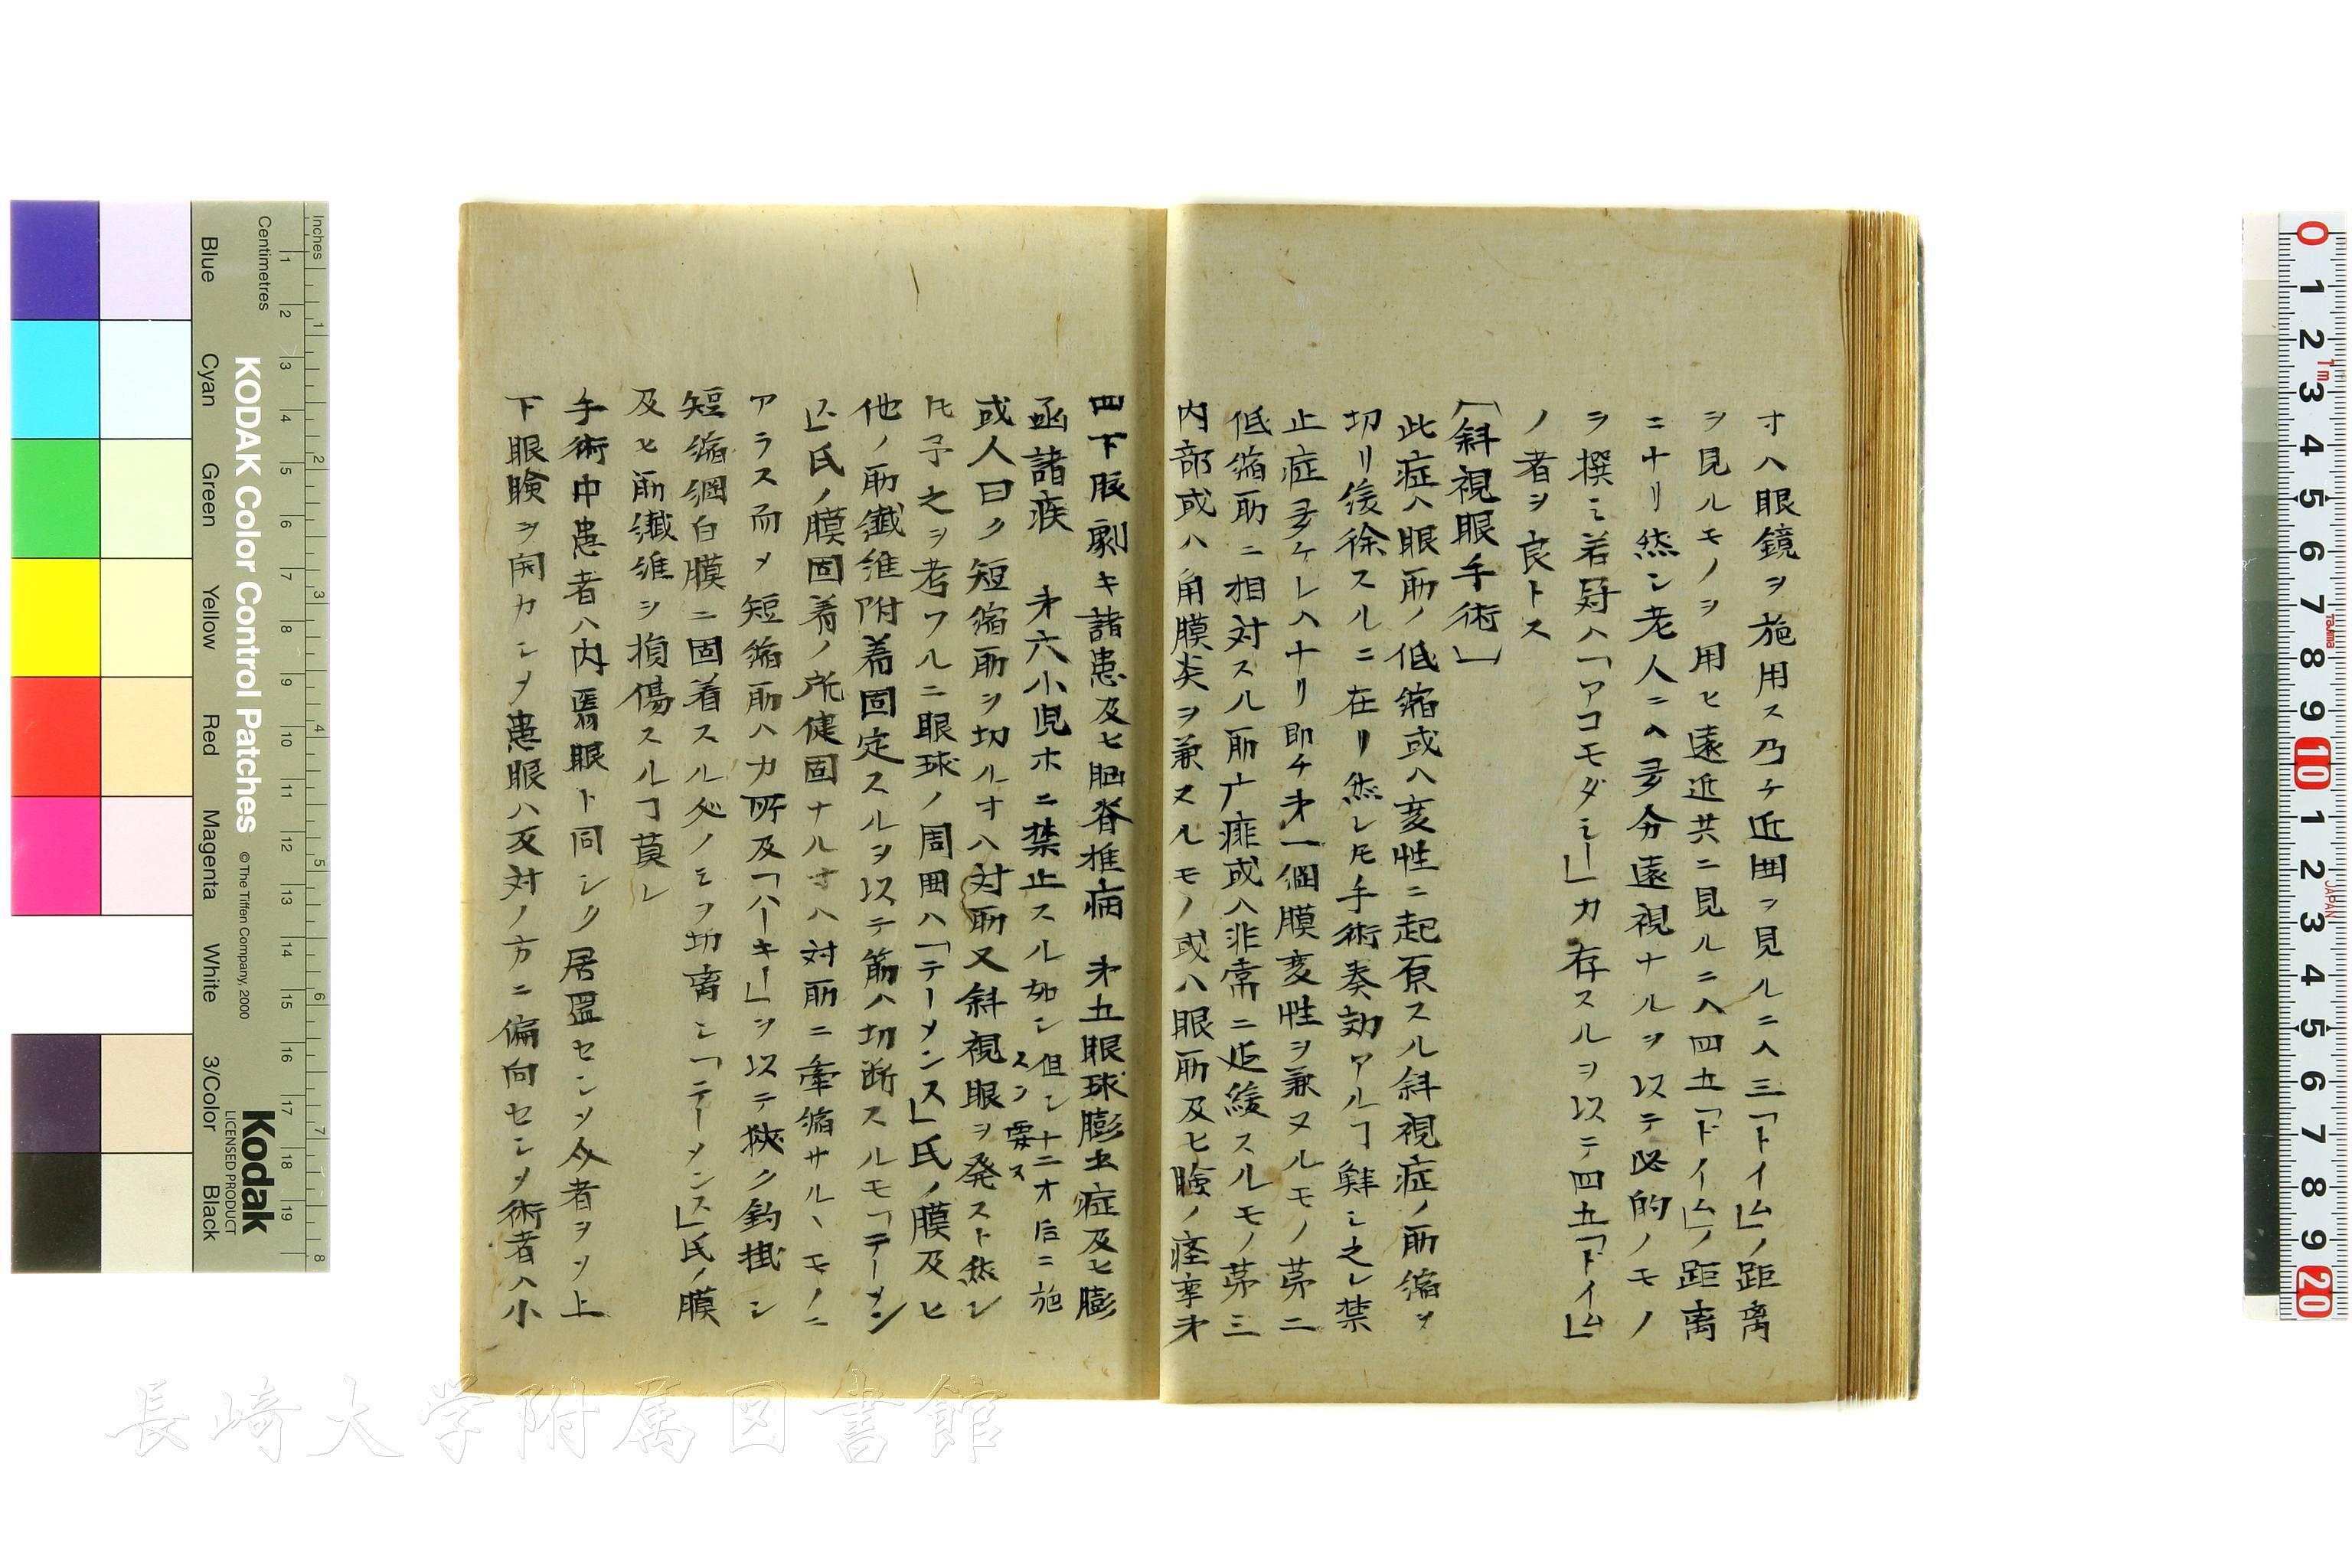 寸ハ眼鏡ヲ施用ス乃チ近囲ヲ見ルニハ三「トイム」ノ距离
ヲ見ルモノヲ用ヒ遠近共ニ見ルニハ四五「ドイム」ノ距离
ニナリ然シ老人ニハ多分遠視ナルヲ以テ必的ノモノ
ヲ撰ミ若冔ハ「アコモダシー」カ存スルヲ以テ四五「ドイム」
ノ者ヲ良トス
〔斜視眼手術〕
此症ハ眼筋ノ低縮或ハ変性ニ起原スル斜視症ノ筋縮ヲ
切リ緩徐スルニ在リ然レ𪜈手術奏効アルヿ鮮シ之レ禁
止症多ケレハナリ即チ第一個膜変性ヲ兼ヌルモノ第二
低縮筋ニ相対スル筋广痱或ハ非常ニ延緩スルモノ第三
内部或ハ角膜炎ヲ兼ヌルモノ或ハ眼筋及ヒ瞼ノ痙挛第
四下脹劇キ諸患及ヒ脳脊椎病　第五眼球膨出症及ヒ膨
亟諸疾　第六小児ホニ禁止スル如シ但シ十二才后ニ施スヲ要ス
或人曰ク短縮筋ヲ切ル寸ハ対筋又斜視眼ヲ発スト然レ
𪜈予之ヲ考フルニ眼球ノ周囲ハ「テーメンス」氏ノ膜及ヒ
他ノ筋纎維附着固定スルヲ以テ筋ハ切断スルモ「テーメン
ス」氏ノ膜固着ノ所健固ナル寸ハ対筋ニ牽縮サルヽモノニ
アラス而メ短縮筋ハ力所及「ハーキー」ヲ以テ狹ク鈎掛シ
短縮綱白膜ニ固着スル処ノミヲ切离シ「テーメンス」氏ノ膜
及ヒ筋纎維ヲ損傷スルヿ莫レ
手術中患者ハ内翳眼ト同シク居𥁕セシメ介者ヲソ上
下眼瞼ヲ開カシメ患眼ハ反対ノ方ニ偏向セシメ術者ハ小
KODAK Color Control Patches
© The Tiffen Company, 2000
Kodak
LICENSED PRODUCT
Inches
Centimetres
Blue Cyan Green Yellow Red Magenta White 3/Color Black
1 2 3 4 5 6 7 8
1 2 3 4 5 6 7 8 9 10 11 12 13 14 15 16 17 18 19
0 1 2 3 4 5 6 7 8 9 10 1 2 3 4 5 6 7 8 9 20
1m
Tajima
JAPAN
長崎大学附属図書館